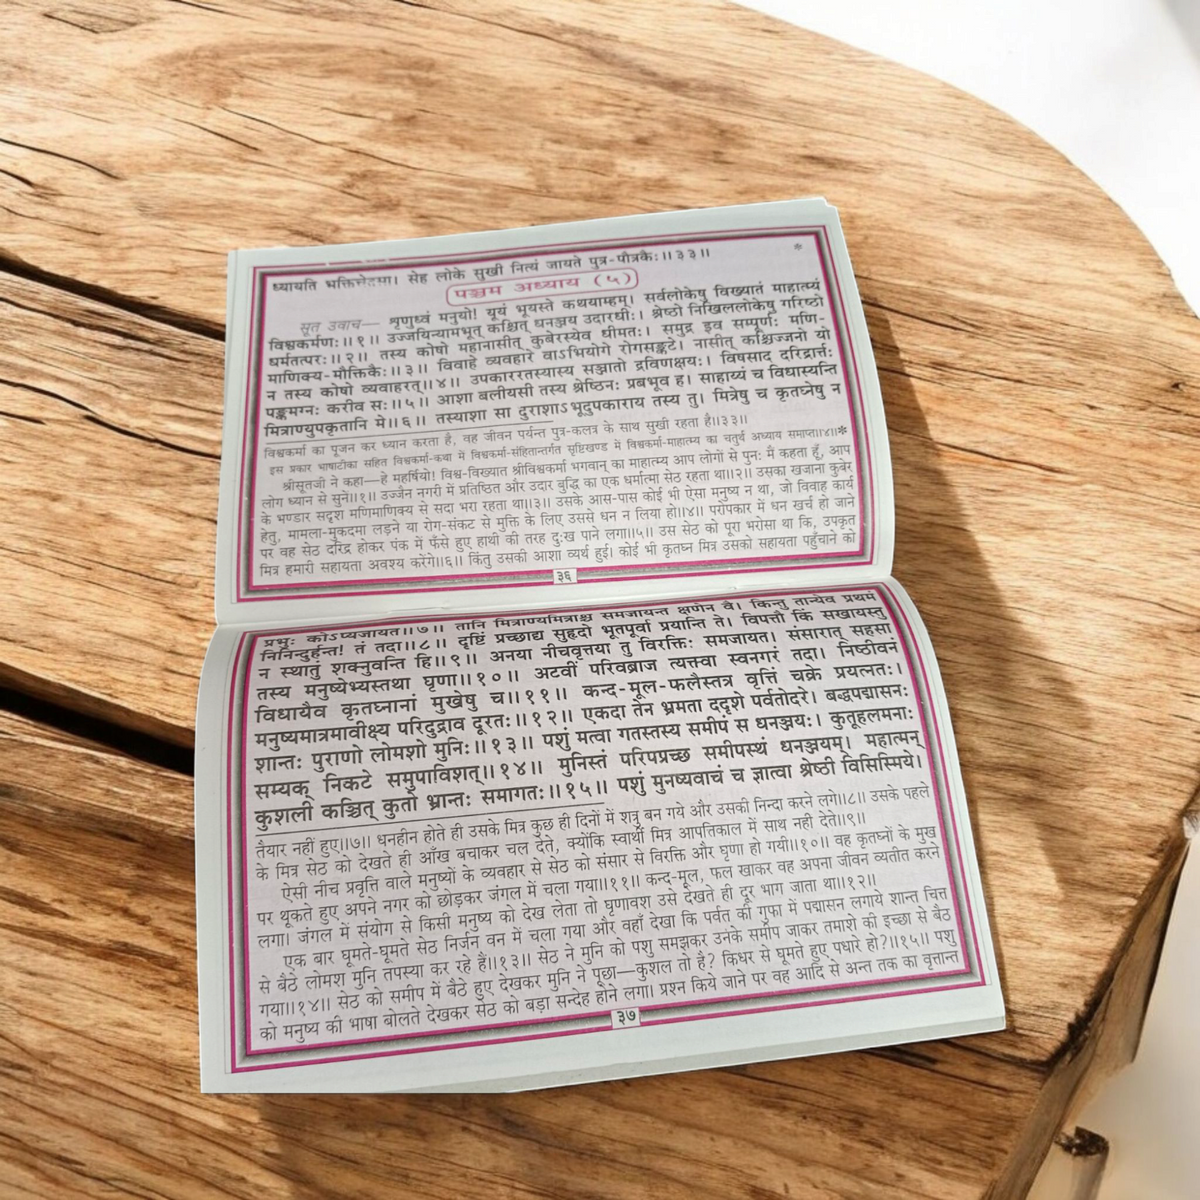 ध्यायति भक्तिचेतसा। सेह लोके सुखी नित्यं जायते पुत्र-पौत्रकैः॥३३॥ *
पञ्चम अध्याय (५)
सूत उवाच— श्रृणुध्वं मनुयो! यूयं भूयस्ते कथयाम्हम्। सर्वलोकेषु विख्यातं माहात्म्यं
विश्वकर्मणः॥१॥ उज्जयिन्यामभूत् कश्चित् धनञ्जय उदारधीः। श्रेष्ठो निखिललोकेषु गरिष्ठो
धर्मतत्परः॥२॥ तस्य कोषो महानासीत् कुबेरस्येव धीमतः। समुद्र इव सम्पूर्णः मणि-
माणिक्य-मौक्तिकैः॥३॥ विवाहे व्यवहारे वाऽभियोगे रोगसङ्कटे। नासीत् कश्चिज्जनो यो
न तस्य कोषो व्यवाहरत्॥४॥ उपकाररतस्यास्य सञ्जातो द्रविणक्षयः। विषसाद दरिद्रार्त्तः
पङ्कमग्नः करीव सः॥५॥ आशा बलीयसी तस्य श्रेष्ठिनः प्रबभूव ह। साहाय्यं च विधास्यन्ति
मित्राण्युपकृतानि मे॥६॥ तस्याशा सा दुराशाऽभूदुपकाराय तस्य तु। मित्रेषु च कृतघ्नेषु न
विश्वकर्मा का पूजन कर ध्यान करता है, वह जीवन पर्यन्त पुत्र-कलत्र के साथ सुखी रहता है॥३३॥
इस प्रकार भाषाटीका सहित विश्वकर्मा-कथा में विश्वकर्मा-संहितान्तर्गत सृष्टिखण्ड में विश्वकर्मा-माहात्म्य का चतुर्थ अध्याय समाप्त॥४॥*
श्रीसूतजी ने कहा—हे महर्षियो! विश्व-विख्यात श्रीविश्वकर्मा भगवान् का माहात्म्य आप लोगों से पुनः मैं कहता हूँ, आप
लोग ध्यान से सुने॥१॥ उज्जैन नगरी में प्रतिष्ठित और उदार बुद्धि का एक धर्मात्मा सेठ रहता था॥२॥ उसका खजाना कुबेर
के भण्डार सदृश मणिमाणिक्य से सदा भरा रहता था॥३॥ उसके आस-पास कोई भी ऐसा मनुष्य न था, जो विवाह कार्य
हेतु, मामला-मुकदमा लड़ने या रोग-संकट से मुक्ति के लिए उससे धन न लिया हो॥४॥ परोपकार में धन खर्च हो जाने
पर वह सेठ दरिद्र होकर पंक में फँसे हुए हाथी की तरह दुःख पाने लगा॥५॥ उस सेठ को पूरा भरोसा था कि, उपकृत
मित्र हमारी सहायता अवश्य करेंगे॥६॥ किंतु उसकी आशा व्यर्थ हुई। कोई भी कृतघ्न मित्र उसको सहायता पहुँचाने को
३६
प्रभुः कोऽप्यजायत॥७॥ तानि मित्राण्यमित्राश्च समजायन्त क्षणेन वै। किन्तु तान्येव प्रथमं
निनिन्दुर्हन्त! तं तदा॥८॥ दृष्टिं प्रच्छाद्य सुहृदो भूतपूर्वा प्रयान्ति ते। विपत्तौ किं सखायस्तु
न स्थातुं शक्नुवन्ति हि॥९॥ अनया नीचवृत्तया तु विरक्तिः समजायत। संसारात् सहसा
तस्य मनुष्येभ्यस्तथा घृणा॥१०॥ अटवीं परिवब्राज त्यक्त्वा स्वनगरं तदा। निष्ठीवनं
विधायैव कृतघ्नानां मुखेषु च॥११॥ कन्द-मूल-फलैस्तत्र वृत्तिं चक्रे प्रयत्नतः।
मनुष्यमात्रमावीक्ष्य परिदुद्राव दूरतः॥१२॥ एकदा तेन भ्रमता ददृशे पर्वतोदरे। बद्धपद्मासनः
शान्तः पुराणो लोमशो मुनिः॥१३॥ पशुं मत्वा गतस्तस्य समीपं स धनञ्जयः। कुतूहलमनाः
सम्यक् निकटे समुपाविशत्॥१४॥ मुनिस्तं परिपप्रच्छ समीपस्थं धनञ्जयम्। महात्मन्
कुशली कच्चित् कुतो भ्रान्तः समागतः॥१५॥ पशुं मुनष्यवाचं च ज्ञात्वा श्रेष्ठी विसिस्मिये।
तैयार नहीं हुए॥७॥ धनहीन होते ही उसके मित्र कुछ ही दिनों में शत्रु बन गये और उसकी निन्दा करने लगे॥८॥ उसके पहले
के मित्र सेठ को देखते ही आँख बचाकर चल देते, क्योंकि स्वार्थी मित्र आपत्तिकाल में साथ नही देते॥९॥
ऐसी नीच प्रवृत्ति वाले मनुष्यों के व्यवहार से सेठ को संसार से विरक्ति और घृणा हो गयी॥१०॥ वह कृतघ्नों के मुख
पर थूकते हुए अपने नगर को छोड़कर जंगल में चला गया॥११॥ कन्द-मूल, फल खाकर वह अपना जीवन व्यतीत करने
लगा। जंगल में संयोग से किसी मनुष्य को देख लेता तो घृणावश उसे देखते ही दूर भाग जाता था॥१२॥
एक बार घूमते-घूमते सेठ निर्जन वन में चला गया और वहाँ देखा कि पर्वत की गुफा में पद्मासन लगाये शान्त चित्त
से बैठे लोमश मुनि तपस्या कर रहे हैं॥१३॥ सेठ ने मुनि को पशु समझकर उनके समीप जाकर तमाशे की इच्छा से बैठ
गया॥१४॥ सेठ को समीप में बैठे हुए देखकर मुनि ने पूछा—कुशल तो है? किधर से घूमते हुए पधारे हो?॥१५॥ पशु
को मनुष्य की भाषा बोलते देखकर सेठ को बड़ा सन्देह होने लगा। प्रश्न किये जाने पर वह आदि से अन्त तक का वृत्तान्त
३७